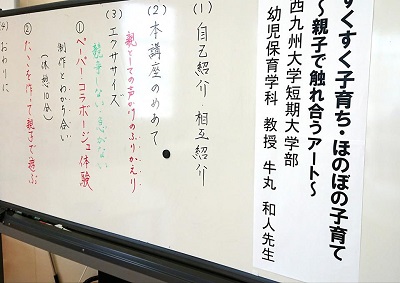 すくすく子育ち・ほのぼの子育て
～親子で触れ合うアート～
西九州大学短期大学部
幼児保育学科 教授 牛丸 和人先生
(1) 自己紹介 相互紹介
(2) 本講座のめあて
親としての声かけのふりかえり
(3) エクササイズ
競争しない 急がない
①ペーパーコラボージュ体験
制作とわかち合い
(休憩10分)
②たこを作って親子で遊ぶ
(4) おわりに